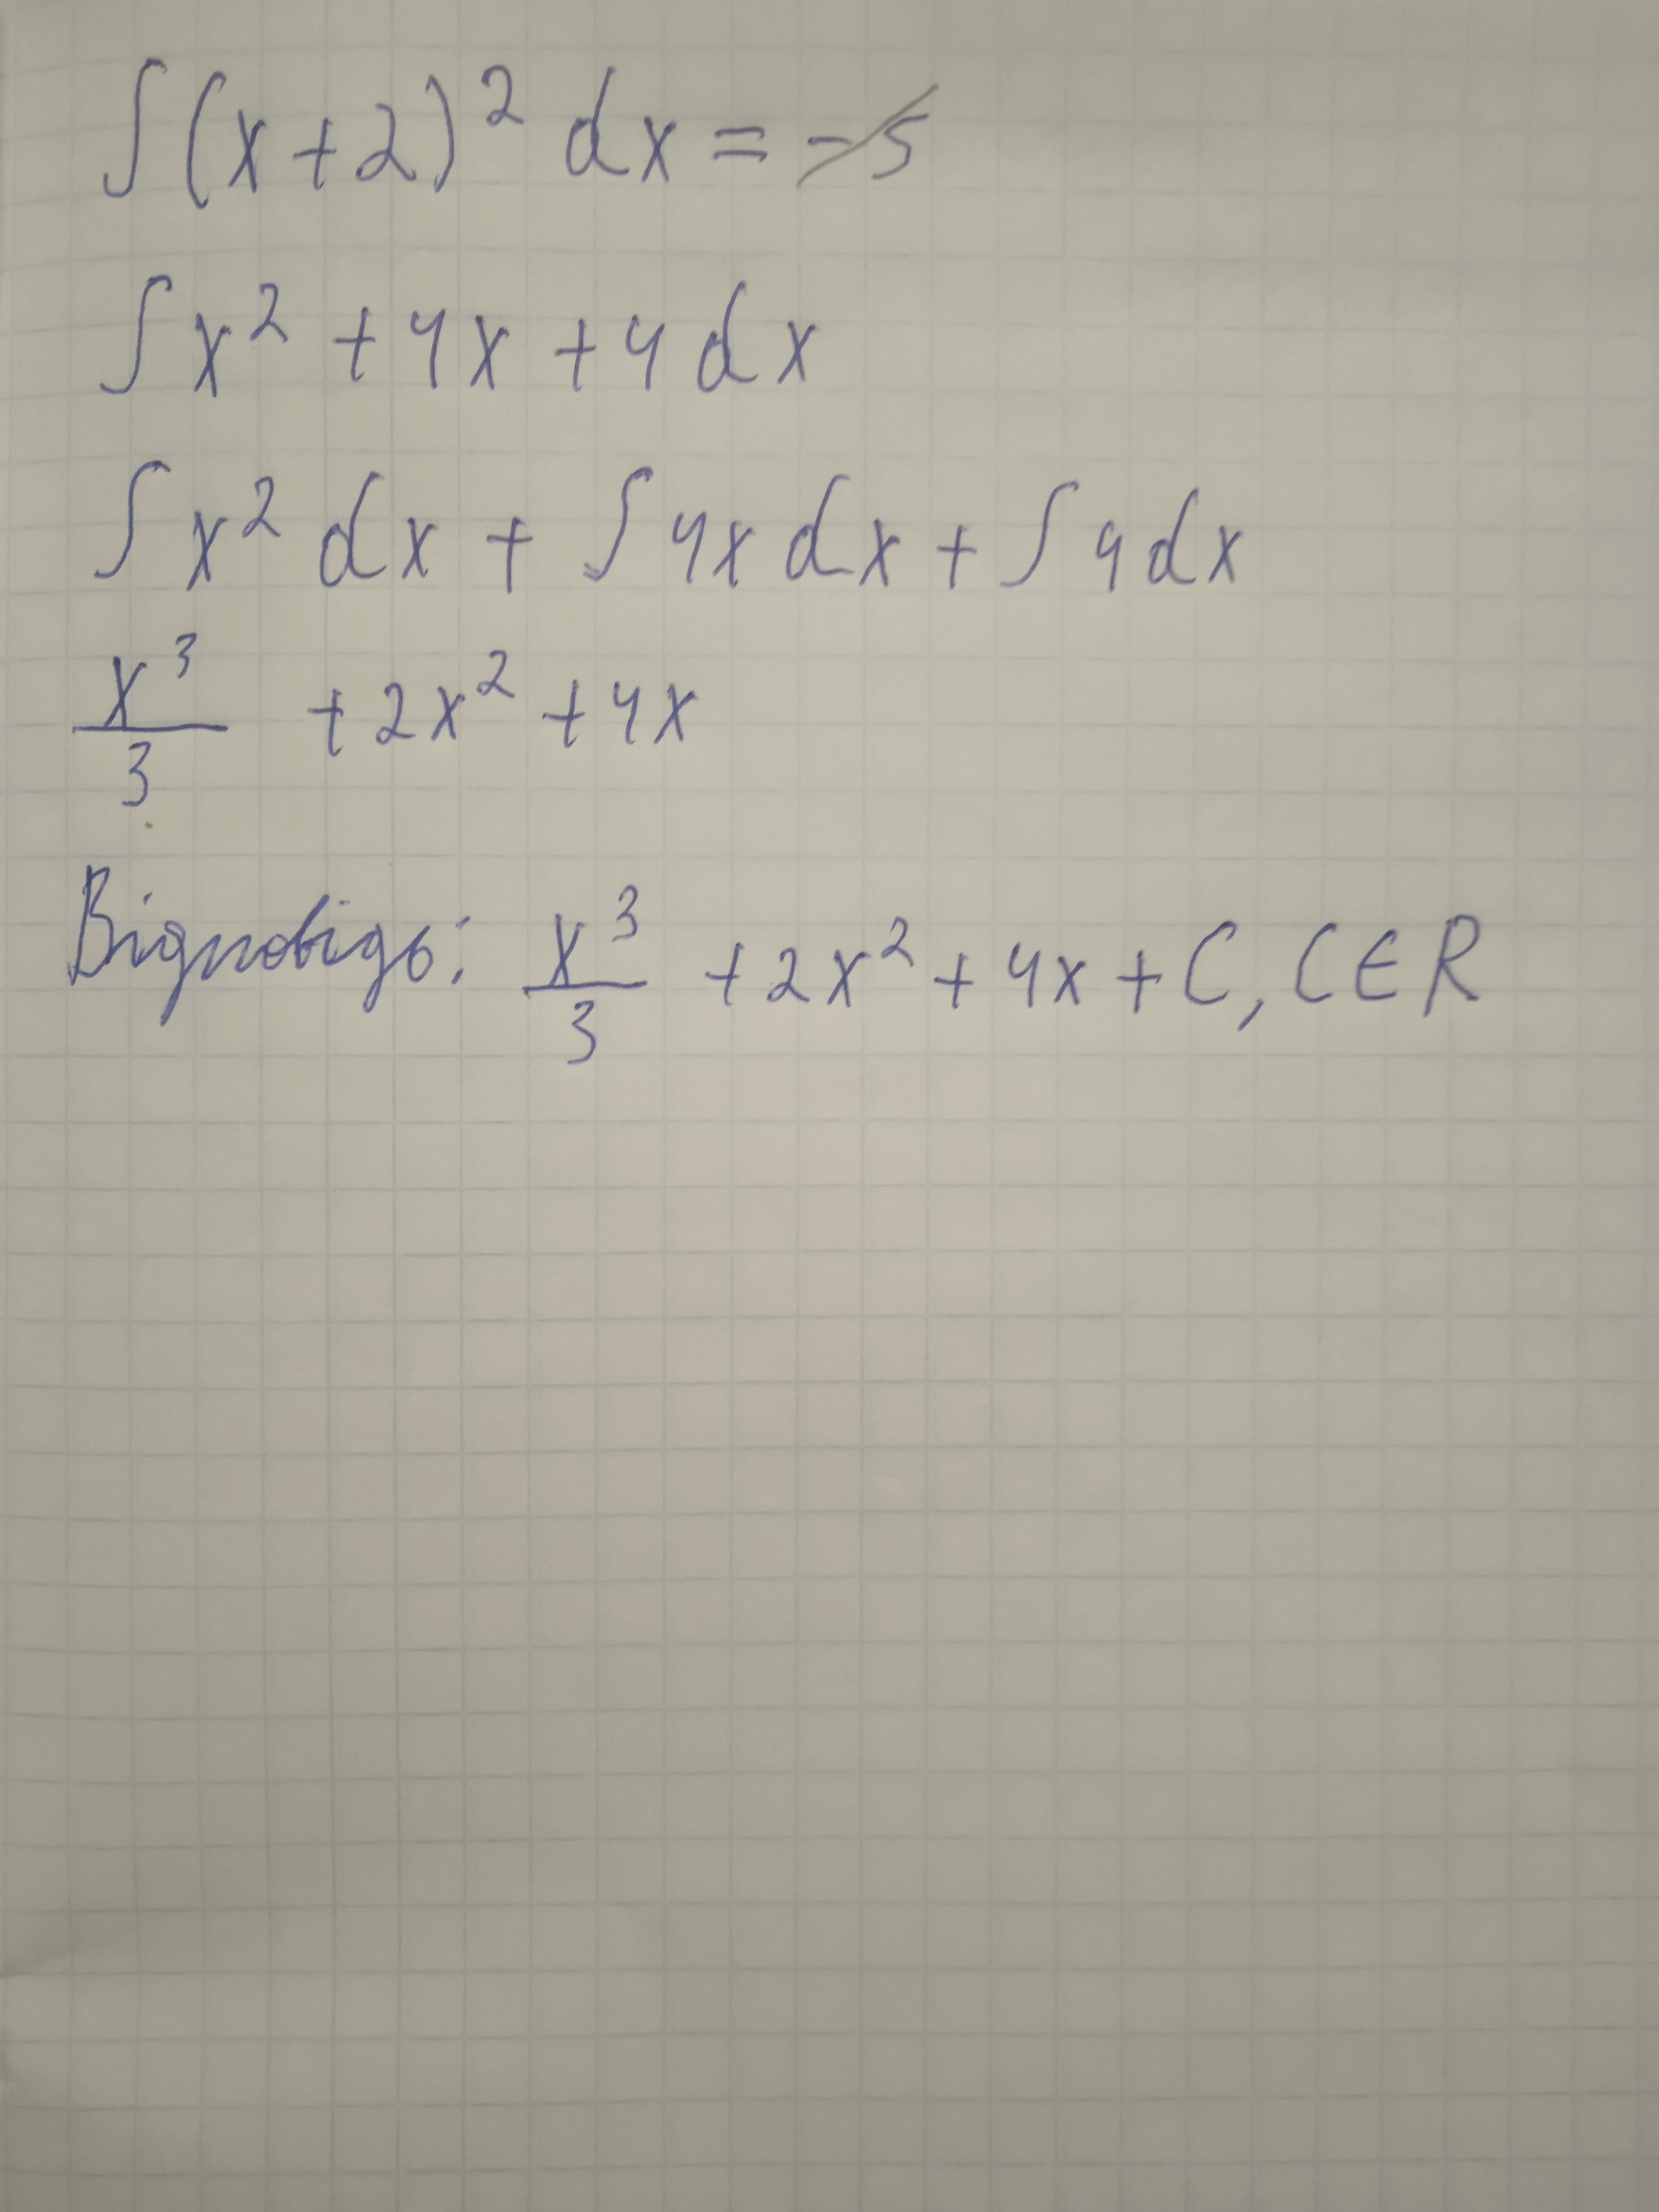 ∫(x+2)² dx = -5
∫x² + 4x + 4dx
∫x² dx + ∫4x dx + ∫4dx
x³/3 + 2x² + 4x
Відповідь: x³/3 + 2x² + 4x + C, C ∈ R